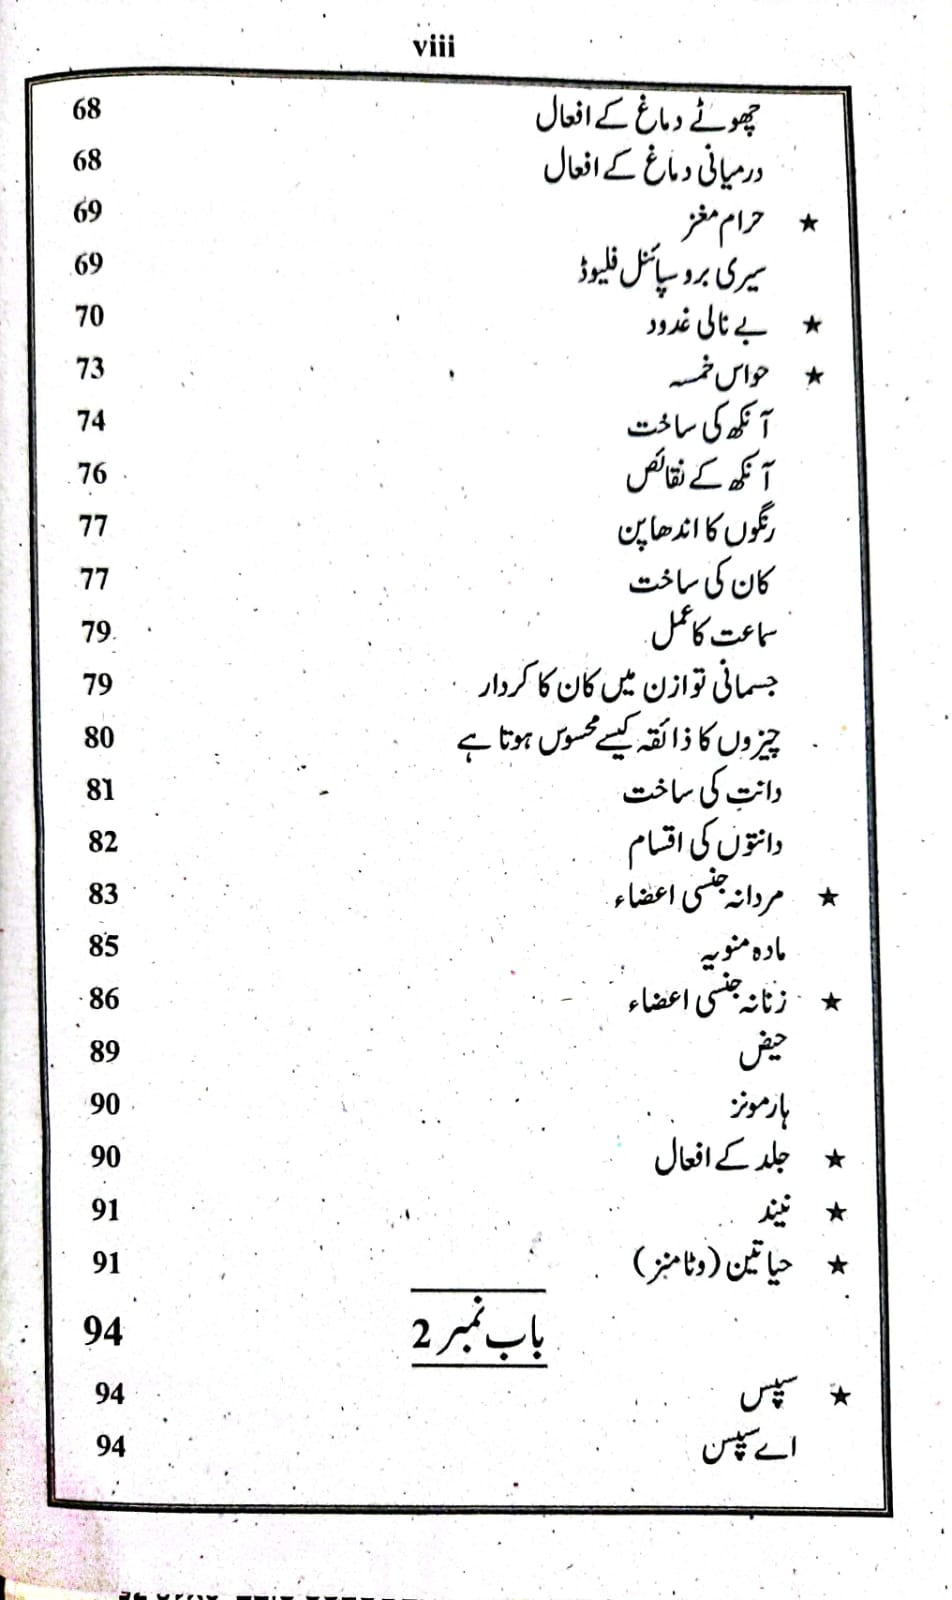 viii
چھوٹے دماغ کے افعال 68
درمیانی دماغ کے افعال 68
★ حرام مغز 69
سیری برو سپائنل فلیوڈ 69
★ بے نالی غدود 70
★ حواس خمسہ 73
آنکھ کی ساخت 74
آنکھ کے نقائص 76
رنگوں کا اندھاپن 77
کان کی ساخت 77
سماعت کا عمل 79
جسمانی توازن میں کان کا کردار 79
چیزوں کا ذائقہ کیسے محسوس ہوتا ہے 80
دانت کی ساخت 81
دانتوں کی اقسام 82
★ مردانہ جنسی اعضاء 83
مادہ منویہ 85
★ زنانہ جنسی اعضاء 86
حیض 89
ہارمونز 90
★ جلد کے افعال 90
★ نیند 91
★ حیاتین (وٹامنز) 91
باب نمبر 2 94
★ سپپس 94
اے سپپس 94